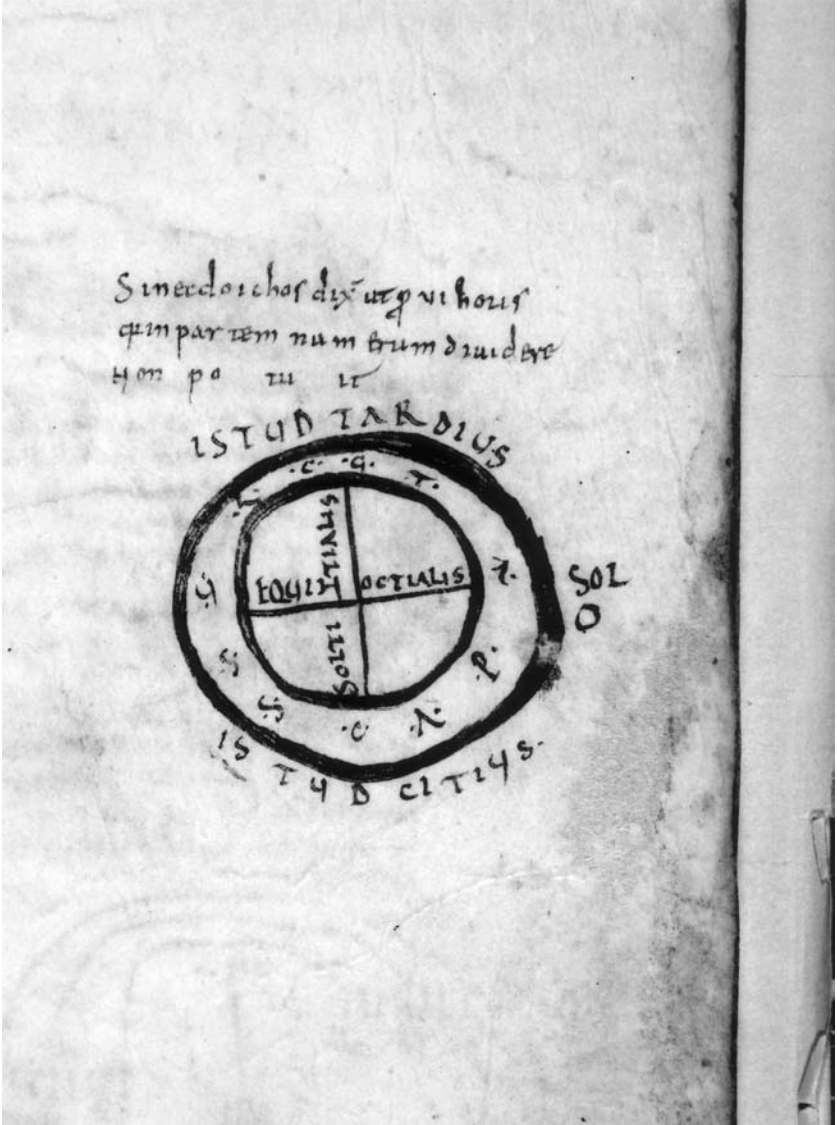 Sinecdoichos dix̄ ut ꝓ vi horis
partem numerum dividere
non po tu it
ISTUD TARDIUS
.C. .G. .T.
L A.
V SOL
EQUI OCTIALIS
SOLTI TIALIS
S .P.
S .C. .A.
IS TUD CITIUS.